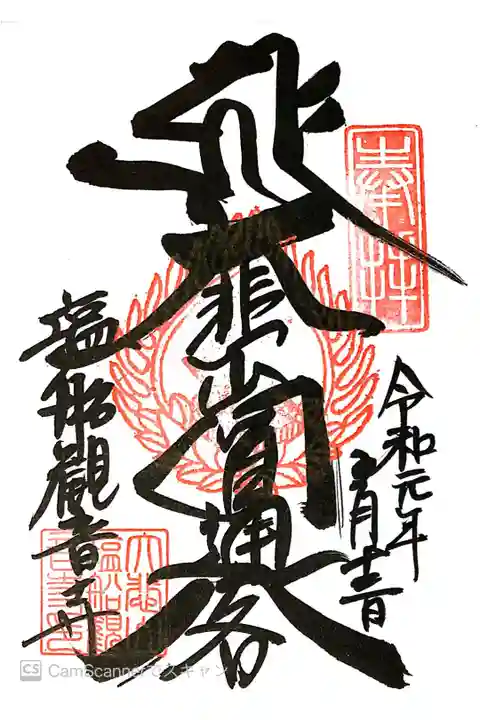 奉拝
令和元年
大悲圓通閣
塩船觀音寺
大悲山
塩船観
音寺印
CS CamScannerでスキャン